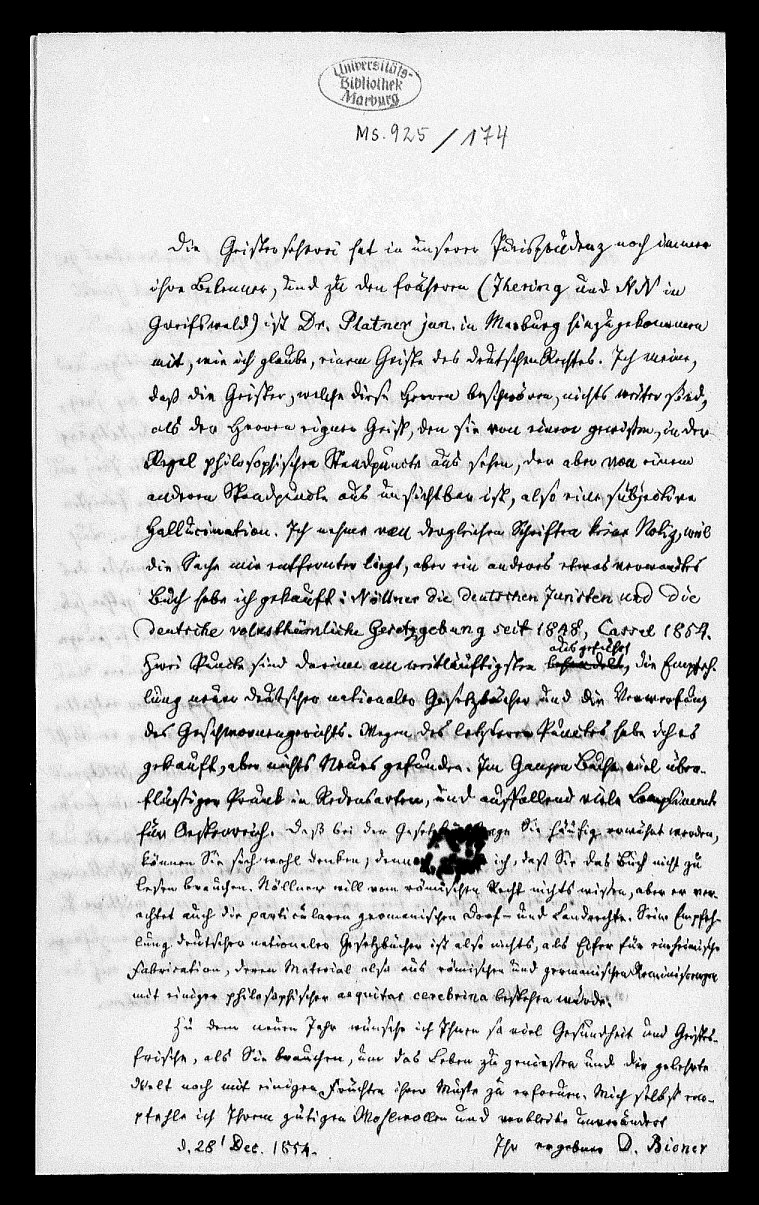 Universitäts-
Bibliothek
Marburg
Ms. 925/174
Die Geisterseherei hat in unserer Jurisprudenz noch immer
ihre Bekenner, und zu den früheren (Ihering und NN in
Greifswald) ist Dr. Platner jun. in Marburg hinzugekommen
mit, wie ich glaube, einem Geiste des deutschen Rechtes. Ich meine,
daß die Geister, welche diese Herren beschwören, nichts weiter sind,
als der Herren eigner Geist, den sie von einem gewissen, in der
Regel philosophischen Standpuncte aus sehen, der aber von einem
anderen Standpuncte aus unsichtbar ist, also eine subjective
Hallucination. Ich nehme von dergleichen Schriften keine Notiz, weil
die Sache mir entfernter liegt, aber ein anderes etwas verwandtes
Buch habe ich gekauft: Nöllner die deutschen Juristen und die
deutsche volksthümliche Gesetzgebung seit 1848, Cassel 1854.
Zwei Punkte sind darinn am weitläuftigsten ausgeführt, die Empfeh-
lung neuer deutscher nationaler Gesetzbücher und die Verwerfung
des Geschwornengerichts. Wegen des letzteren Punctes habe ich es
gekauft, aber nichts Neues gefunden. Im Ganzen Buche viel über-
flüssiger Prunk in Redensarten, und auffallend viele Complimente
für Oesterreich. Daß bei der Sie häufig erwähnt werden,
können Sie sich wohl denken, ich, daß Sie das Buch nicht zu
lesen brauchen. Nöllner will vom römischen Recht nichts wissen, aber er ver-
achtet auch die particularen germanischen Dorf- und Landrechte. Seine Empfeh-
lung deutscher nationaler Gesetzbücher ist also nichts, als Eifer für einheimische
Fabrication, deren Material also aus römischen und germanischen Reminiscenzen
mit einiger philosophischer aequitas cerebrina bestehen würde.
Zu dem neuen Jahr wünsche ich Ihnen so viel Gesundheit und Geistes-
frische, als Sie brauchen, um das Leben zu genießen und die gelehrte
Welt noch mit einigen Früchten ihrer Muße zu erfreuen. Mich selbst em-
pfehle ich Ihrem gütigen Wohlwollen und verbleibe unverändert
d. 28 Dec. 1854. Ihr ergebner D. Biener